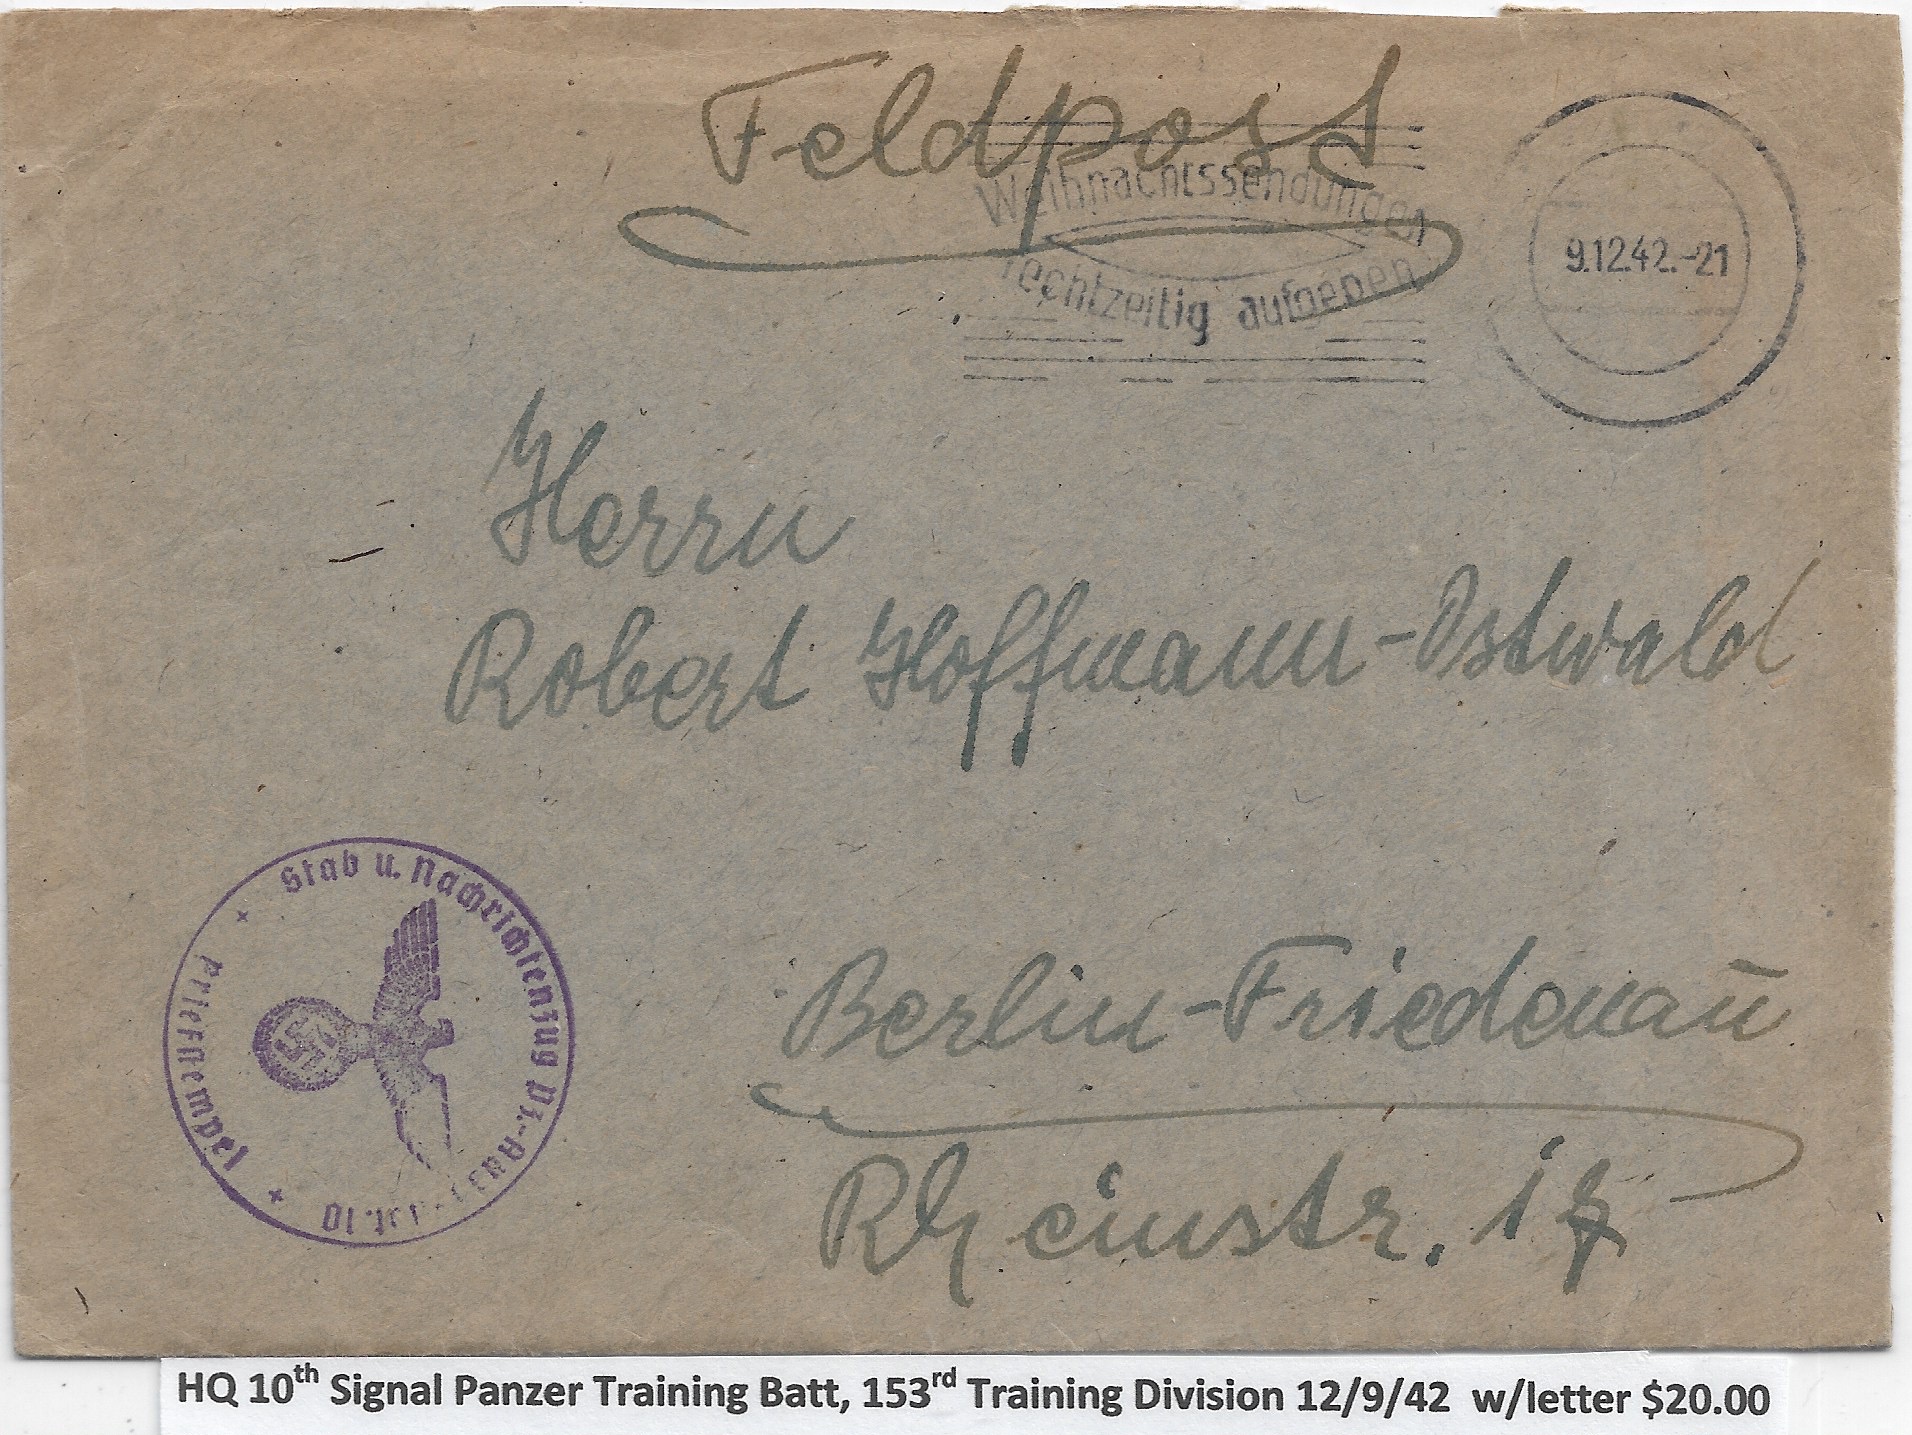 Feldpost
Weihnachtssendungen
rechtzeitig aufgeben
9.12.42.-21
Herrn
Robert Hoffmann-Ostwald
Stab u. Nachrichtenzug Pz.-Ausb.-Abt. 10
Briefstempel
Berlin-Friedenau
Rheinstr. 17
HQ 10th Signal Panzer Training Batt, 153rd Training Division 12/9/42 w/letter $20.00